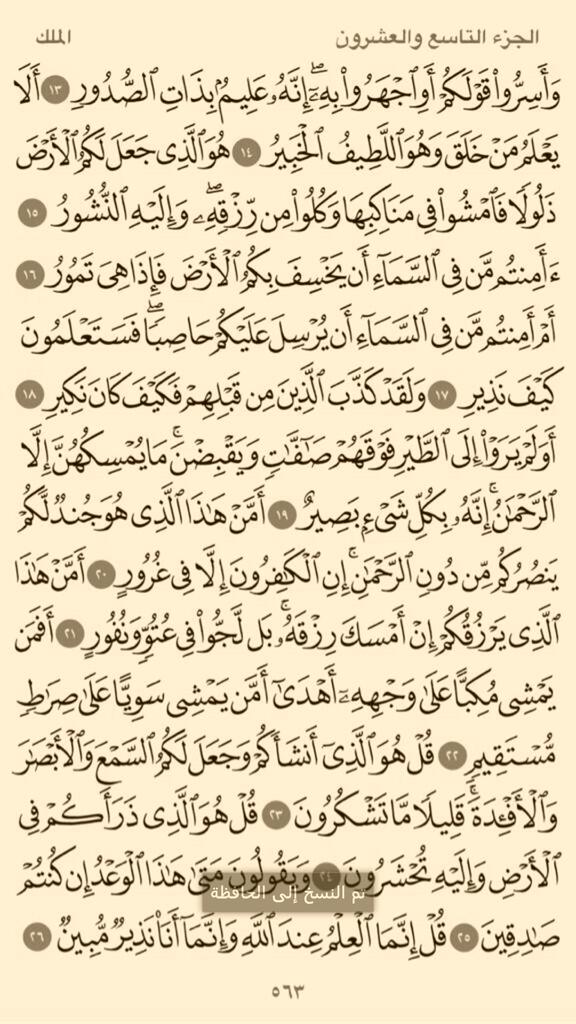 الجزء التاسع والعشرون الملك
وَأَسِرُّوا۟ قَوْلَكُمْ أَوِ ٱجْهَرُوا۟ بِهِۦٓ ۖ إِنَّهُۥ عَلِيمٌۢ بِذَاتِ ٱلصُّدُورِ ١٣ أَلَا
يَعْلَمُ مَنْ خَلَقَ وَهُوَ ٱللَّطِيفُ ٱلْخَبِيرُ ١٤ هُوَ ٱلَّذِى جَعَلَ لَكُمُ ٱلْأَرْضَ
ذَلُولًا فَٱمْشُوا۟ فِى مَنَاكِبِهَا وَكُلُوا۟ مِن رِّزْقِهِۦ ۖ وَإِلَيْهِ ٱلنُّشُورُ ١٥
ءَأَمِنتُم مَّن فِى ٱلسَّمَآءِ أَن يَخْسِفَ بِكُمُ ٱلْأَرْضَ فَإِذَا هِىَ تَمُورُ ١٦
أَمْ أَمِنتُم مَّن فِى ٱلسَّمَآءِ أَن يُرْسِلَ عَلَيْكُمْ حَاصِبًا ۖ فَسَتَعْلَمُونَ
كَيْفَ نَذِيرِ ١٧ وَلَقَدْ كَذَّبَ ٱلَّذِينَ مِن قَبْلِهِمْ فَكَيْفَ كَانَ نَكِيرِ ١٨
أَوَلَمْ يَرَوْا۟ إِلَى ٱلطَّيْرِ فَوْقَهُمْ صَـٰٓفَّـٰتٍ وَيَقْبِضْنَ ۚ مَا يُمْسِكُهُنَّ إِلَّا
ٱلرَّحْمَـٰنُ ۚ إِنَّهُۥ بِكُلِّ شَىْءٍۭ بَصِيرٌ ١٩ أَمَّنْ هَـٰذَا ٱلَّذِى هُوَ جُندٌ لَّكُمْ
يَنصُرُكُم مِّن دُونِ ٱلرَّحْمَـٰنِ ۚ إِنِ ٱلْكَـٰفِرُونَ إِلَّا فِى غُرُورٍ ٢٠ أَمَّنْ هَـٰذَا
ٱلَّذِى يَرْزُقُكُمْ إِنْ أَمْسَكَ رِزْقَهُۥ ۚ بَل لَّجُّوا۟ فِى عُتُوٍّ وَنُفُورٍ ٢١ أَفَمَن
يَمْشِى مُكِبًّا عَلَىٰ وَجْهِهِۦٓ أَهْدَىٰٓ أَمَّن يَمْشِى سَوِيًّا عَلَىٰ صِرَٰطٍ
مُّسْتَقِيمٍ ٢٢ قُلْ هُوَ ٱلَّذِىٓ أَنشَأَكُمْ وَجَعَلَ لَكُمُ ٱلسَّمْعَ وَٱلْأَبْصَـٰرَ
وَٱلْأَفْـِٔدَةَ ۖ قَلِيلًا مَّا تَشْكُرُونَ ٢٣ قُلْ هُوَ ٱلَّذِى ذَرَأَكُمْ فِى
ٱلْأَرْضِ وَإِلَيْهِ تُحْشَرُونَ ٢٤ وَيَقُولُونَ مَتَىٰ هَـٰذَا ٱلْوَعْدُ إِن كُنتُمْ
تم النسخ إلى الحافظة
صَـٰدِقِينَ ٢٥ قُلْ إِنَّمَا ٱلْعِلْمُ عِندَ ٱللَّهِ وَإِنَّمَآ أَنَا۠ نَذِيرٌ مُّبِينٌ ٢٦
٥٦٣